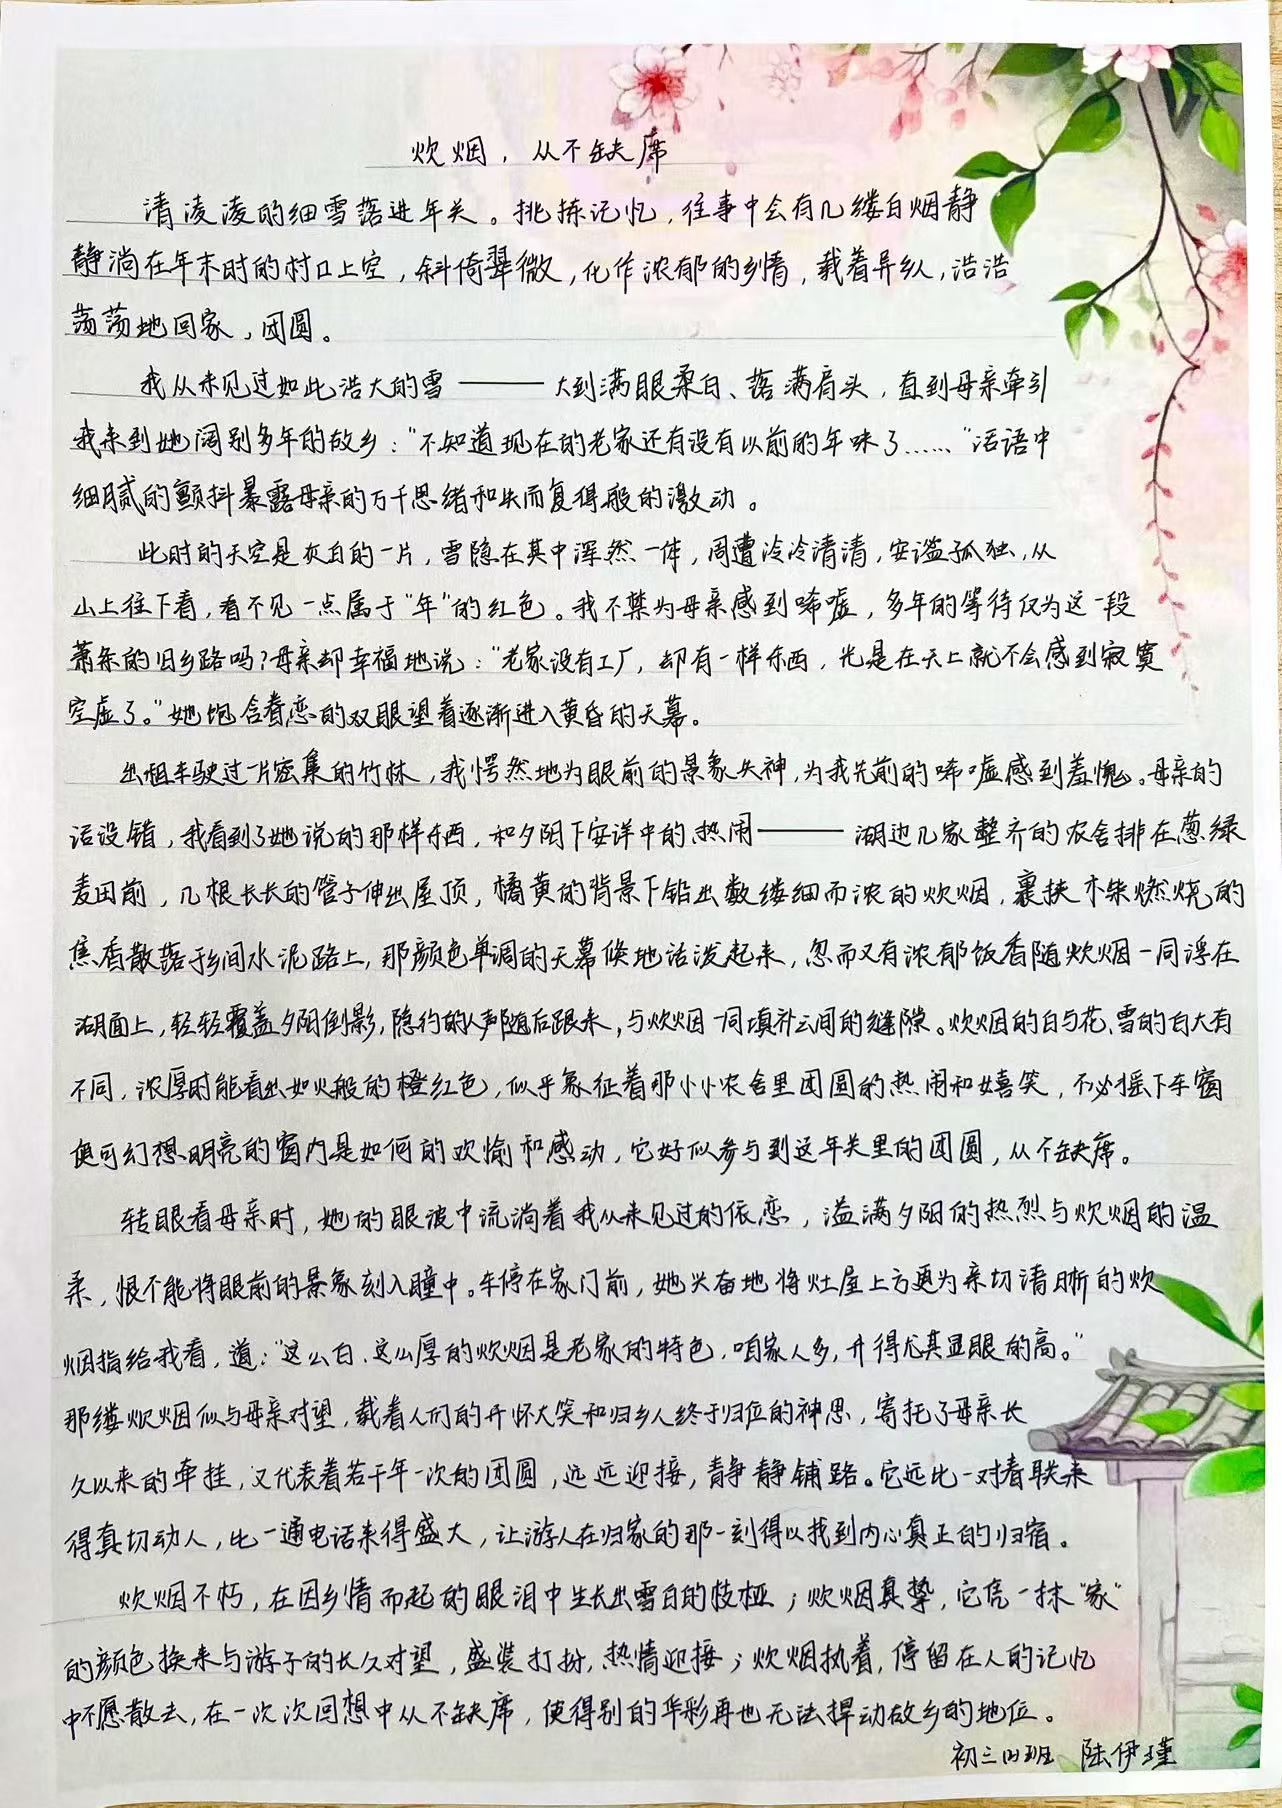 炊烟，从不缺席
清凌凌的细雪落进年关。挑拣记忆，往事中会有几缕白烟静
静淌在年末时的村口上空，斜倚翠微，化作浓郁的乡情，载着异乡人，浩浩
荡荡地回家，团圆。
我从未见过如此浩大的雪——大到满眼柔白、落满肩头，直到母亲牵引
我来到她阔别多年的故乡：“不知道现在的老家还有没有以前的年味了……”话语中
细腻的颤抖暴露母亲的万千思绪和失而复得般的激动。
此时的天空是灰白的一片，雪隐在其中浑然一体，周遭冷冷清清，安谧孤独，从
山上往下看，看不见一点属于“年”的红色。我不禁为母亲感到唏嘘，多年的等待仅为这一段
萧条的旧乡路吗？母亲却幸福地说：“老家没有工厂，却有一样东西，光是在天上就不会感到寂寞
空虚了。”她饱含眷恋的双眼望着逐渐进入黄昏的天幕。
出租车驶过一片密集的竹林，我愕然地为眼前的景象失神，为我先前的唏嘘感到羞愧。母亲的
话没错，我看到了她说的那样东西，和夕阳下安详中的热闹——湖边几家整齐的农舍排在葱绿
麦田前，几根长长的管子伸出屋顶，橘黄的背景下钻出数缕细而浓的炊烟，裹挟木柴燃烧的
焦香散落于乡间水泥路上，那颜色单调的天幕倏地活泼起来，忽而又有浓郁饭香随炊烟一同浮在
湖面上，轻轻覆盖夕阳倒影，隐约的人声随后跟来，与炊烟一同填补云间的缝隙。炊烟的白与花、雪的白大有
不同，浓厚时能看出如火般的橙红色，似乎象征着那小小农舍里团圆的热闹和嬉笑，不必摇下车窗
便可幻想明亮的窗内是如何的欢愉和感动，它好似参与到这年关里的团圆，从不缺席。
转眼看母亲时，她的眼波中流淌着我从未见过的依恋，溢满夕阳的热烈与炊烟的温
柔，恨不能将眼前的景象刻入瞳中。车停在家门前，她兴奋地将灶屋上方更为亲切清晰的炊
烟指给我看，道：“这么白、这么厚的炊烟是老家的特色，咱家人多，升得尤其显眼的高。”
那缕炊烟似与母亲对望，载着人们的开怀大笑和归乡人终于归位的神思，寄托了母亲长
久以来的牵挂，又代表着若干年一次的团圆，远远迎接，静静铺路。它远比一对春联来
得真切动人，比一通电话来得盛大，让游人在归家的那一刻得以找到内心真正的归宿。
炊烟不朽，在因乡情而起的眼泪中生长出雪白的枝桠；炊烟真挚，它凭一抹“家”
的颜色换来与游子的长久对望，盛装打扮，热情迎接；炊烟执着，停留在人的记忆
中不愿散去，在一次次回想中从不缺席，使得别的华彩再也无法捍动故乡的地位。
初三四班 陆伊瑾